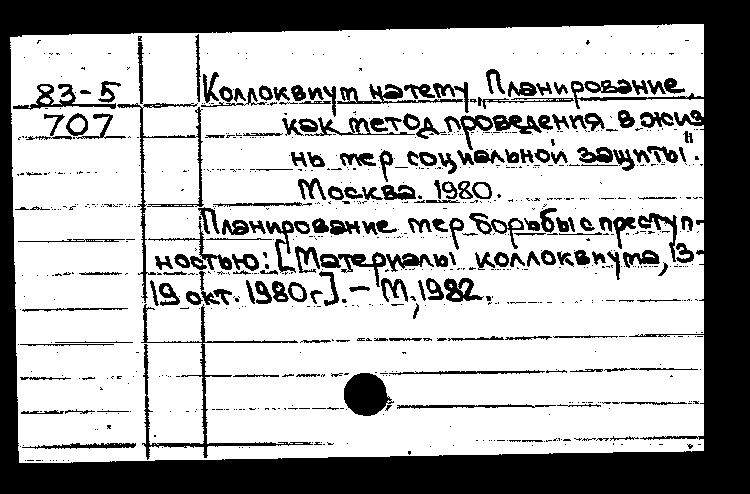 83-5
707
Коллоквиум на тему "Планирование,
как метод проведения в жиз
нь мер социальной защиты".
Москва. 1980.
Планирование мер борьбы с преступ-
ностью: [Материалы коллоквиума, 13-
19 окт. 1980г]. - М, 1982.